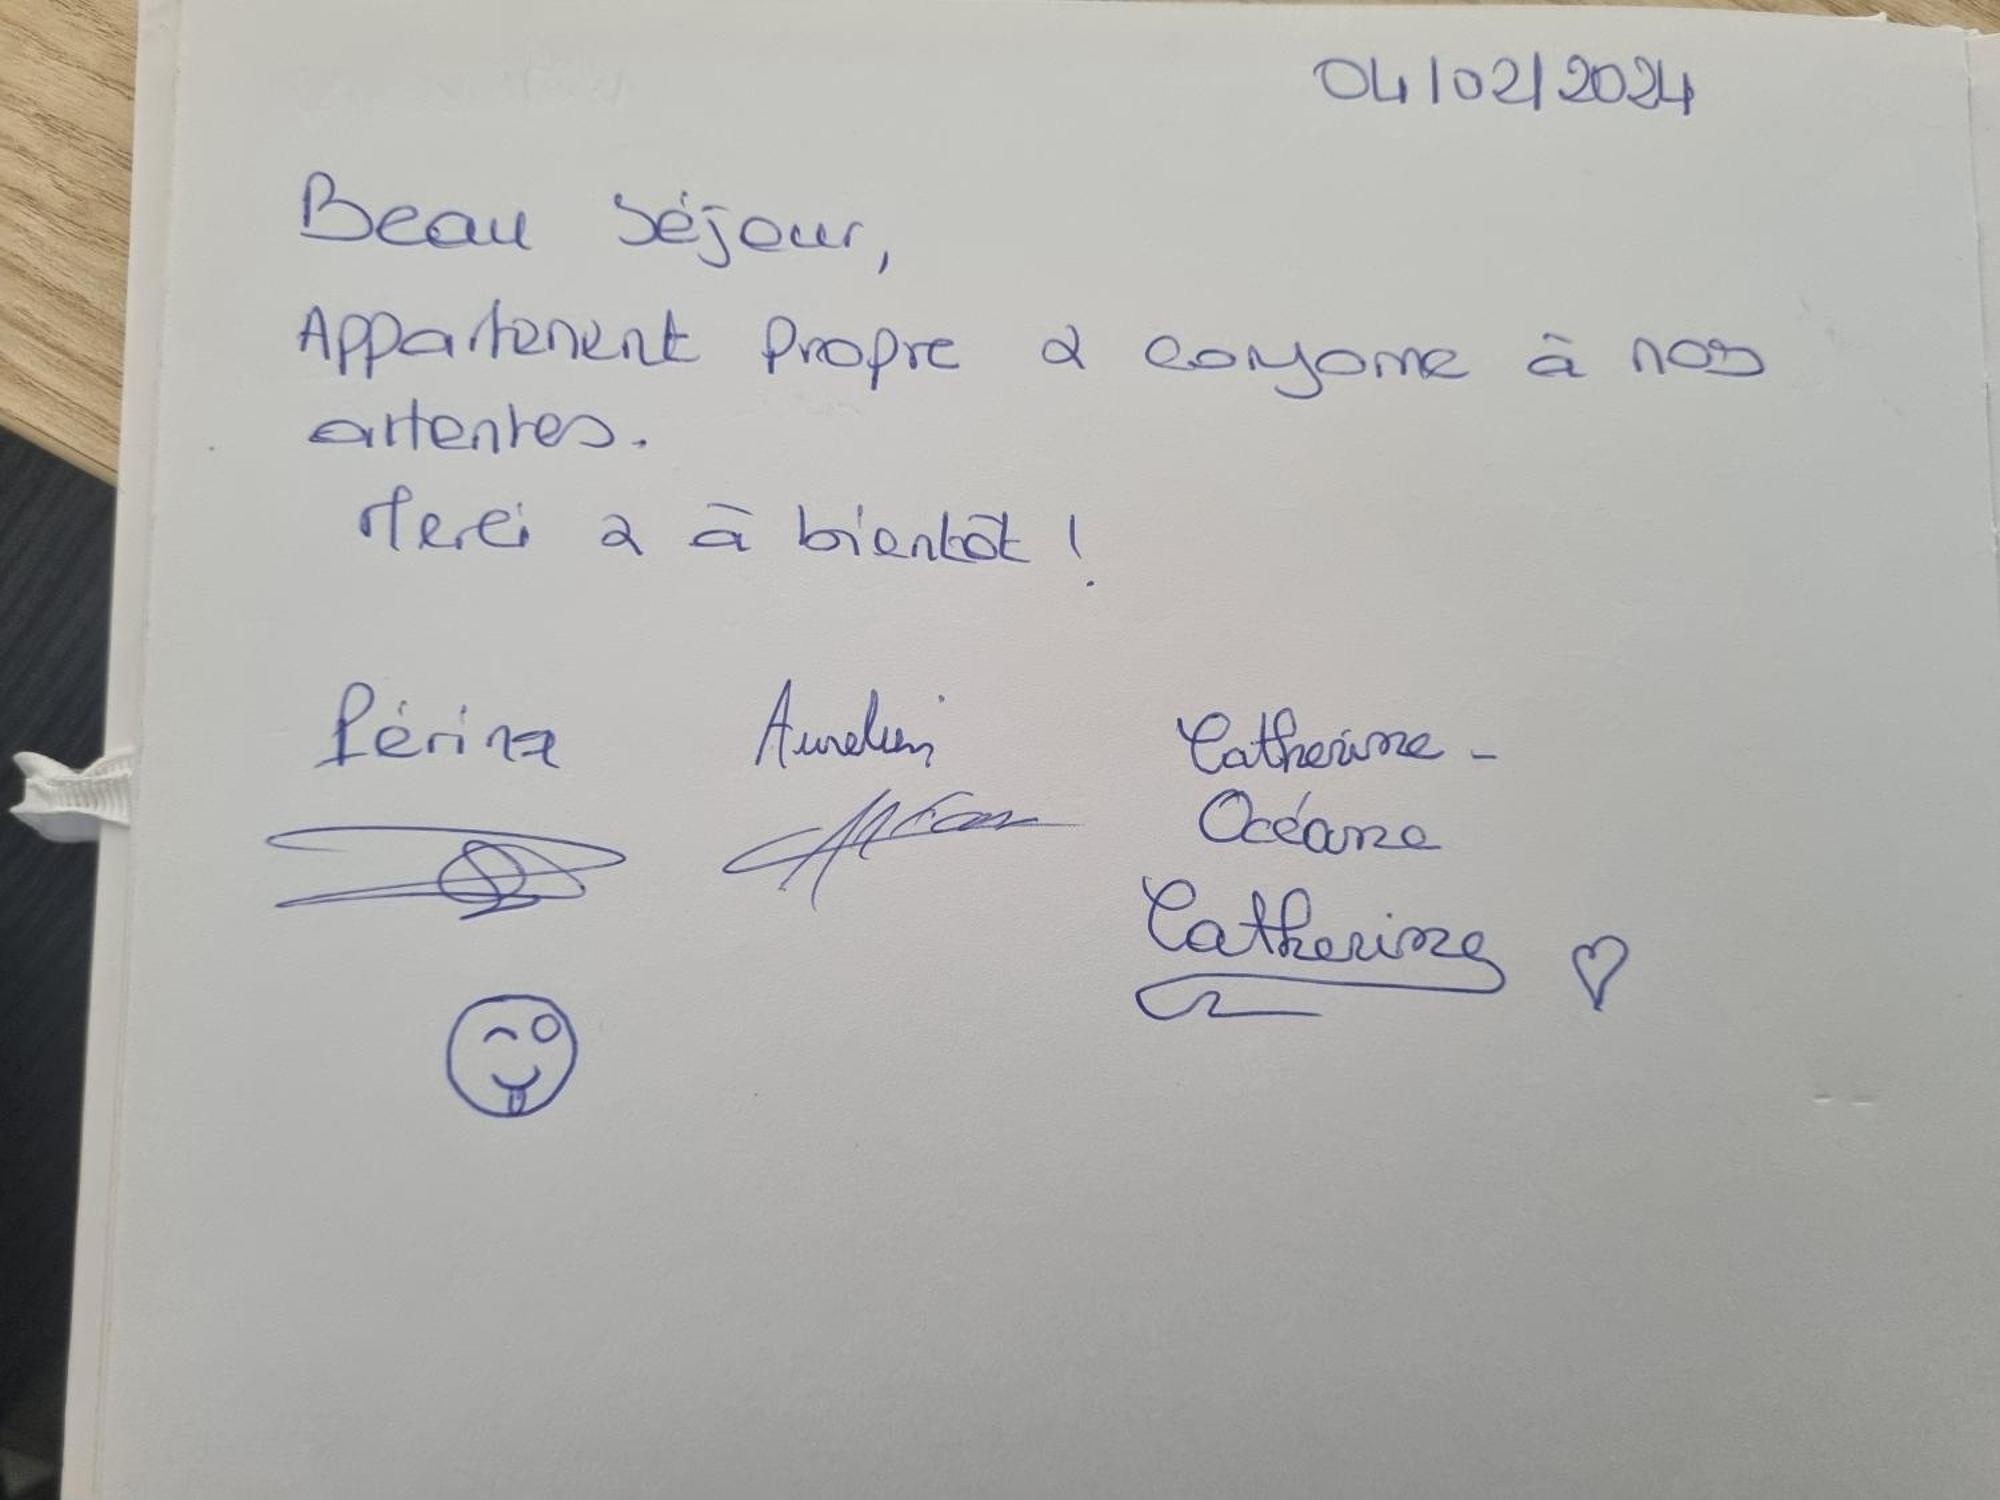 04/02/2024
Beau séjour,
Appartement propre & conforme à nos
attentes.
Merci & à bientôt !
Périne Aurelien Catherine-
Océane
Catherine